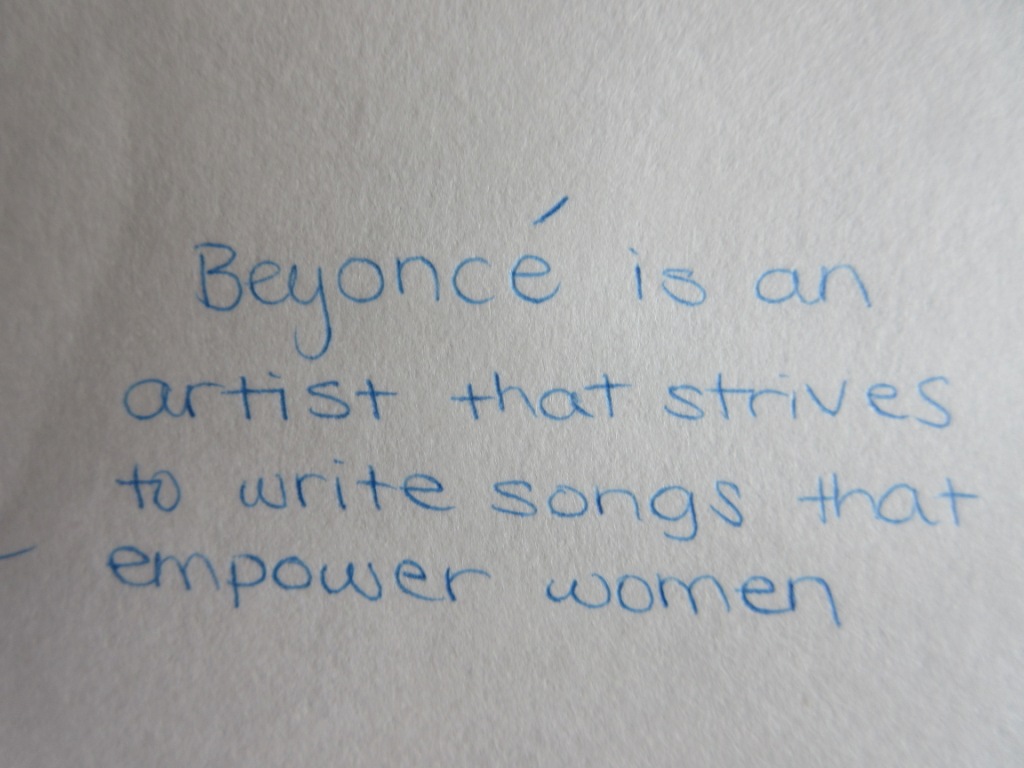 Beyoncé is an
artist that strives
to write songs that
empower women